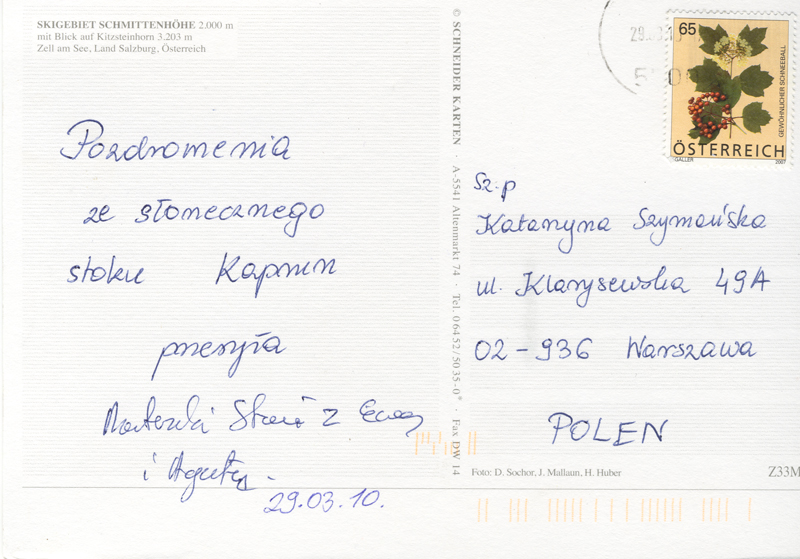 SKIGEBIET SCHMITTENHÖHE 2.000 m
mit Blick auf Kitzsteinhorn 3.203 m
Zell am See, Land Salzburg, Österreich
Pozdrowienia
ze słonecznego
stoku Kaprun
przesyła
z Ewą
i Agatą.
29.03.10.
© SCHNEIDER KARTEN · A-5541 Altenmarkt 74 · Tel. 0 64 52 / 50 35-0* · Fax DW 14
65
GEWÖHNLICHER SCHNEEBALL
ÖSTERREICH
GALLER 2007
Sz.p
Katarzyna Szymańska
ul. Klarysewska 49A
02-936 Warszawa
POLEN
Foto: D. Sochor, J. Mallaun, H. Huber
Z33M